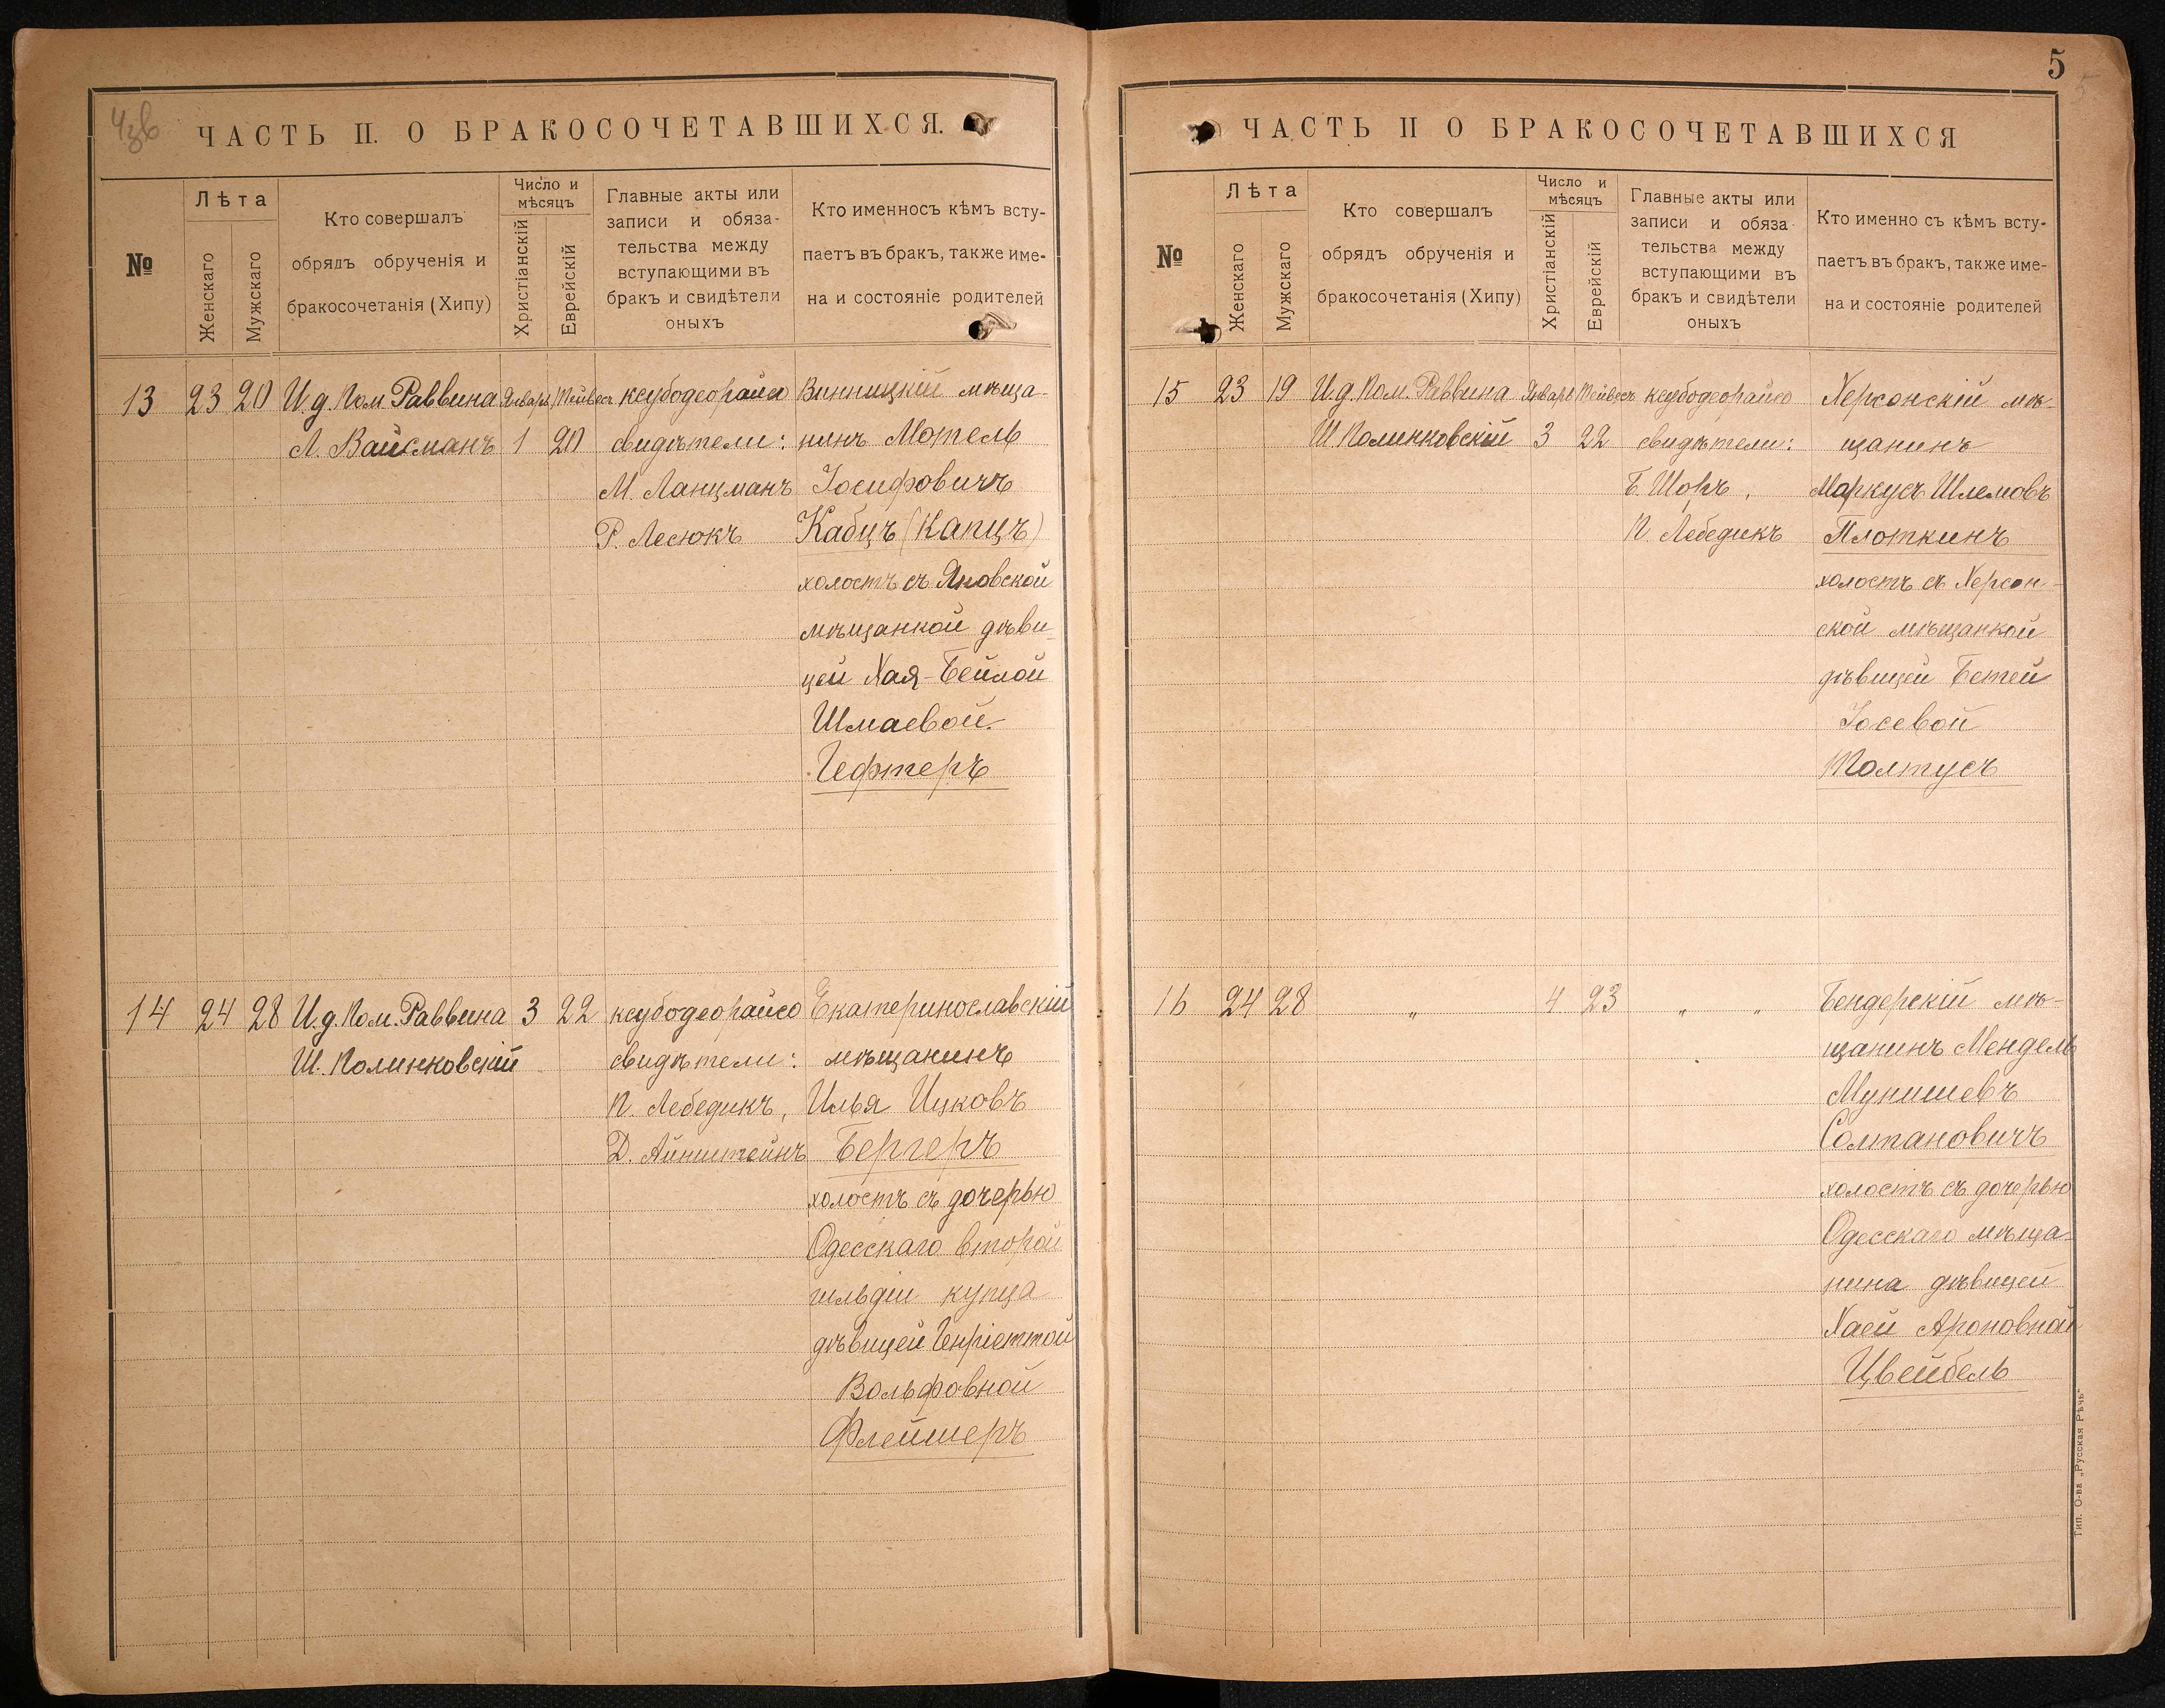 ЧАСТЬ II. О БРАКОСОЧЕТАВШИХСЯ.
№
Лѣта
Женскаго
Мужскаго
Кто совершалъ
обрядъ обрученія и
бракосочетанія (Хипу)
Число и
мѣсяцъ
Христіанскій
Еврейскій
Главные акты или
записи и обяза-
тельства между
вступающими въ
бракъ и свидѣтели
оныхъ
Кто именносъ кѣмъ всту-
паетъ въ бракъ, также име-
на и состояніе родителей
13 23 20 И.д. Пом Раввина Январь Тейвесъ ксубодеорайсо Винницкій мѣща-
Л. Вайсманъ 1 20 свидѣтели: нинъ Мотель
М. Ланцманъ Іосифовичъ
Р. Лесюкъ Кабцъ (Капцъ)
холостъ съ Яновской
мѣщанкой дѣви-
цей Хая-Бейлой
Шмаевой
Гефтеръ
14 24 28 И.д. Пом. Раввина 3 22 ксубодеорайсо Екатеринославскій
Ш. Полинковскій свидѣтели: мѣщанинъ
П. Лебедикъ, Илья Ицковъ
Д. Айнштейнъ Бергеръ
холостъ съ дочерью
Одесскаго второй
гильдіи купца
дѣвицей Генріеттой
Вольфовной
Флейшеръ
5
ЧАСТЬ II О БРАКОСОЧЕТАВШИХСЯ
№
Лѣта
Женскаго
Мужскаго
Кто совершалъ
обрядъ обрученія и
бракосочетанія (Хипу)
Число и
мѣсяцъ
Христіанскій
Еврейскій
Главные акты или
записи и обяза-
тельства между
вступающими въ
бракъ и свидѣтели
оныхъ
Кто именно съ кѣмъ всту-
паетъ въ бракъ, также име-
на и состояніе родителей
15 23 19 И.д. Пом. Раввина Январь Тейвесъ ксубодеорайсо Херсонскій мѣ-
Ш Полинковскій 3 22 свидѣтели: щанинъ
Б. Шоръ, Маркусъ Шлемовъ
П. Лебедикъ Плоткинъ
холостъ съ Херсон-
ской мѣщанкой
дѣвицей Бетей
Іосевой
Полтусъ
16 24 28 „ 4 23 „ „ Бендерскій мѣ-
щанинъ Мендель
Мунишевъ
Солтановичъ
холостъ съ дочерью
Одесскаго мѣща-
нина дѣвицей
Хаей Ароновной
Цвейбель
Тип. О-ва „Русская Рѣчь“